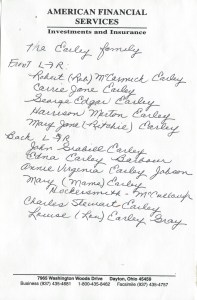 AMERICAN FINANCIAL
SERVICES
Investments and Insurance
The Earley family
Front L-R
Robert (Rob) McCormick Earley
Carrie Jane Earley
George Edgar Earley
Harrison Morton Earley
Mary Jane (Ritchie) Earley
Back L-R
John Grabill Earley
Edna Earley Barbour
Annie Virginia Earley Johnson
Mary (Mame) Earley
McCullough
Charles Stewart Earley
Louise (Lou) Earley Gray
7965 Washington Woods Drive Dayton, Ohio 45459
Business (937) 435-4651 1-800-435-9462 Facsimile (937) 435-4757